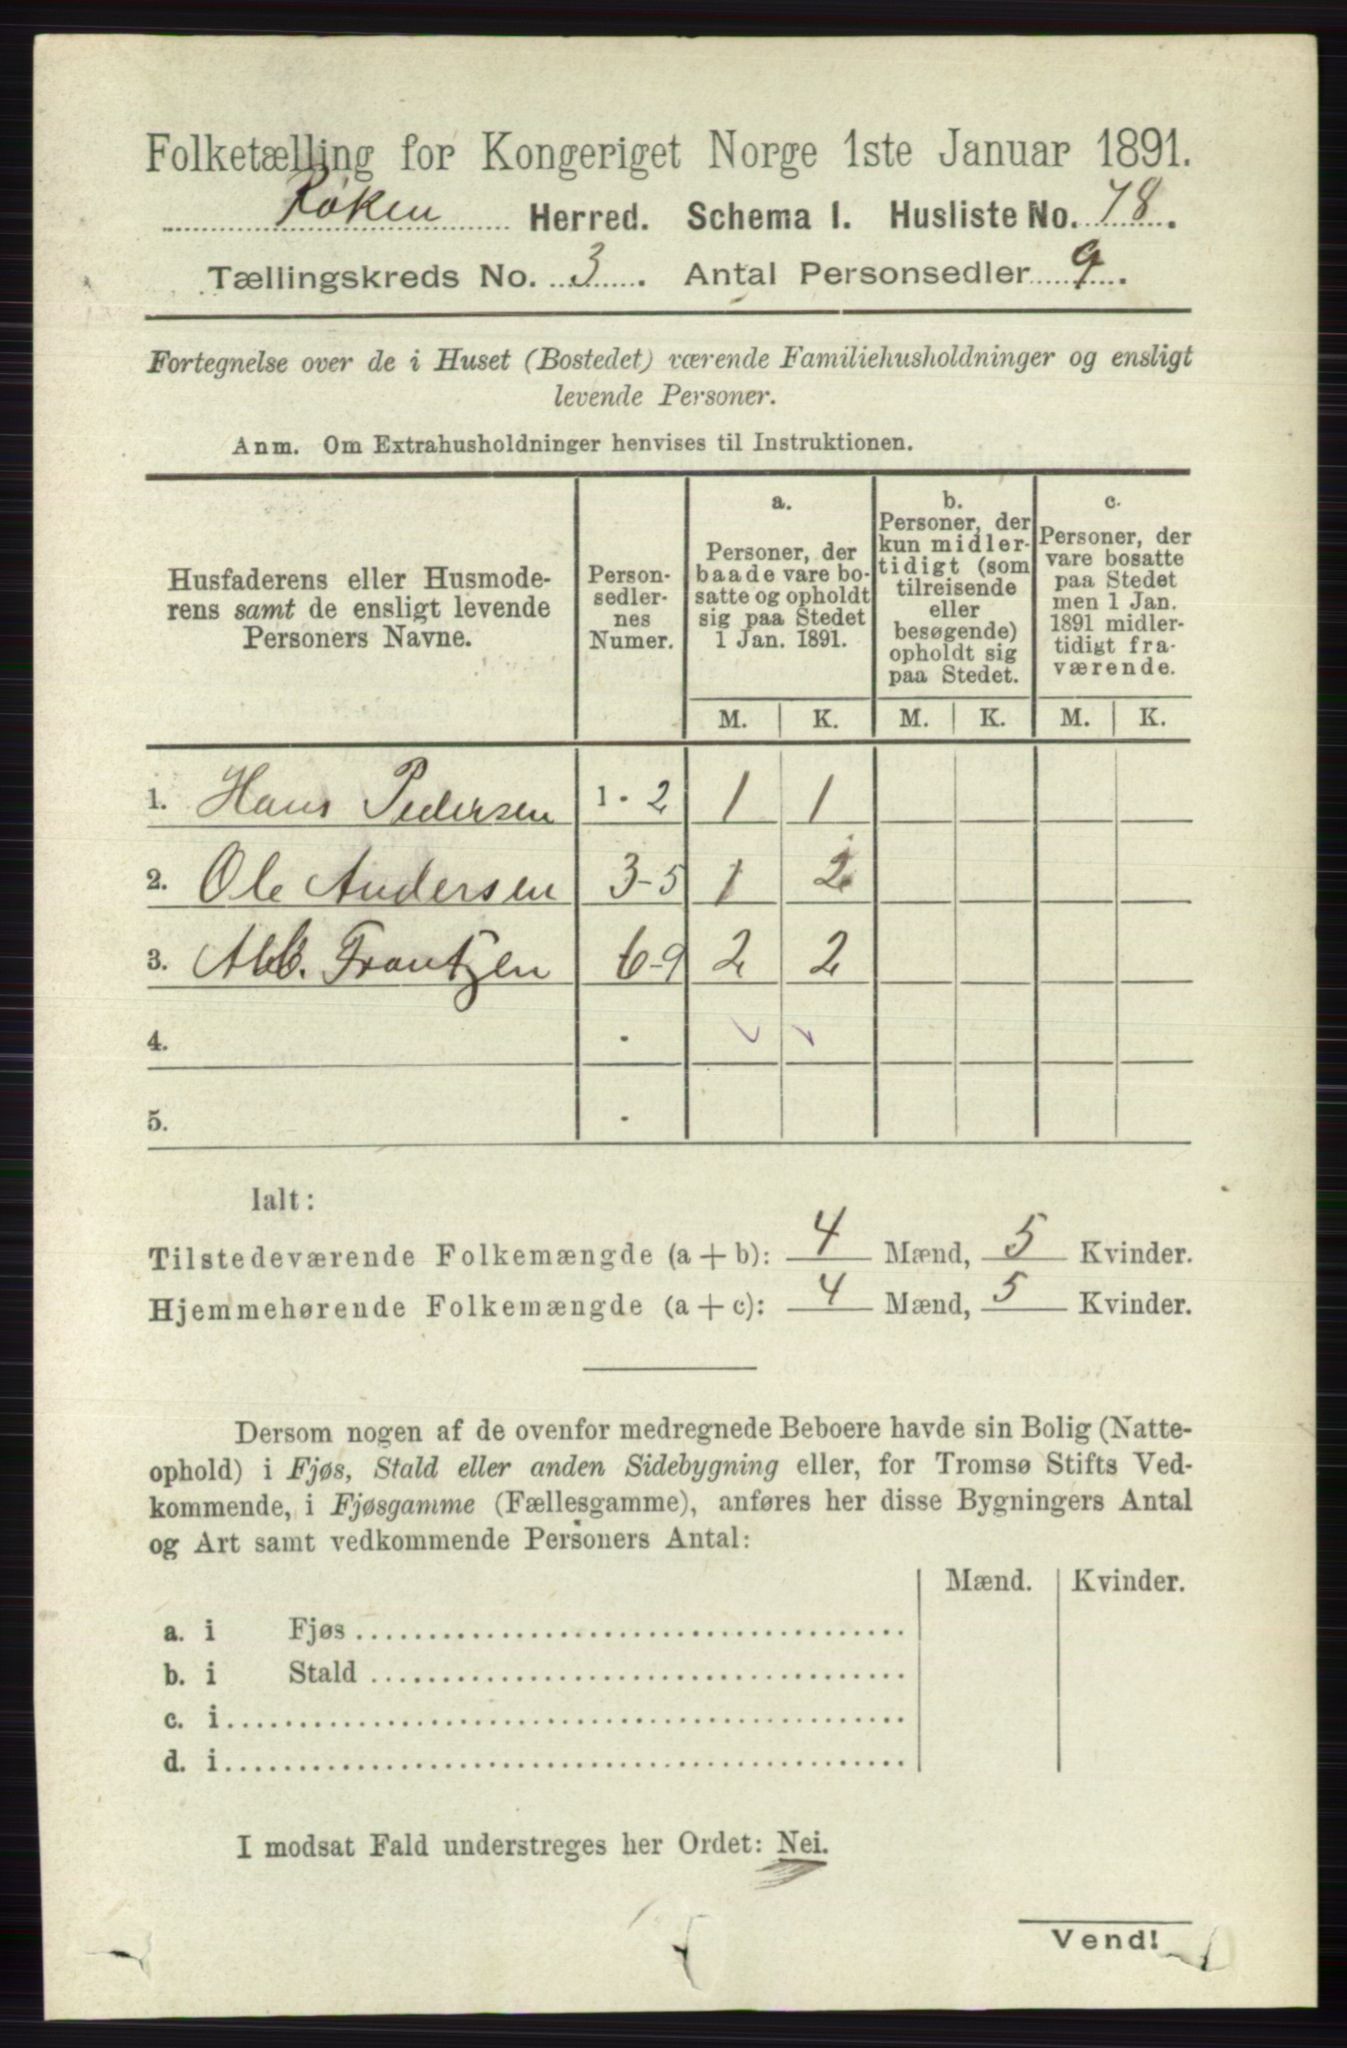 Folketælling for Kongeriget Norge 1ste Januar 1891.
Røken Herred. Schema I. Husliste No. 78.
Tællingskreds No. 3. Antal Personsedler 9.
Fortegnelse over de i Huset (Bostedet) værende Familiehusholdninger og ensligt
levende Personer.
Anm. Om Extrahusholdninger henvises til Instruktionen.
Husfaderens eller Husmode-
rens samt de ensligt levende
Personers Navne.
Person-
sedler-
nes
Numer.
a.
Personer, der
baade vare bo-
satte og opholdt
sig paa Stedet
1 Jan. 1891.
b.
Personer, der
kun midler-
tidigt (som
tilreisende
eller
besøgende)
opholdt sig
paa Stedet.
c.
Personer, der
vare bosatte
paa Stedet
men 1 Jan.
1891 midler-
tidigt fra-
værende.
M. K. M. K. M. K.
1. Hans Pedersen 1-2 1 1
2. Ole Andersen 3-5 1 2
3. Frantzen 6-9 2 2
4.
5.
Ialt:
Tilstedeværende Folkemængde (a + b): 4 Mænd, 5 Kvinder.
Hjemmehørende Folkemængde (a + c): 4 Mænd, 5 Kvinder.
Dersom nogen af de ovenfor medregnede Beboere havde sin Bolig (Natte-
ophold) i Fjøs, Stald eller anden Sidebygning eller, for Tromsø Stifts Ved-
kommende, i Fjøsgamme (Fællesgamme), anføres her disse Bygningers Antal
og Art samt vedkommende Personers Antal:
Mænd. Kvinder.
a. i Fjøs
b. i Stald
c. i
d. i
I modsat Fald understreges her Ordet: Nei.
Vend!